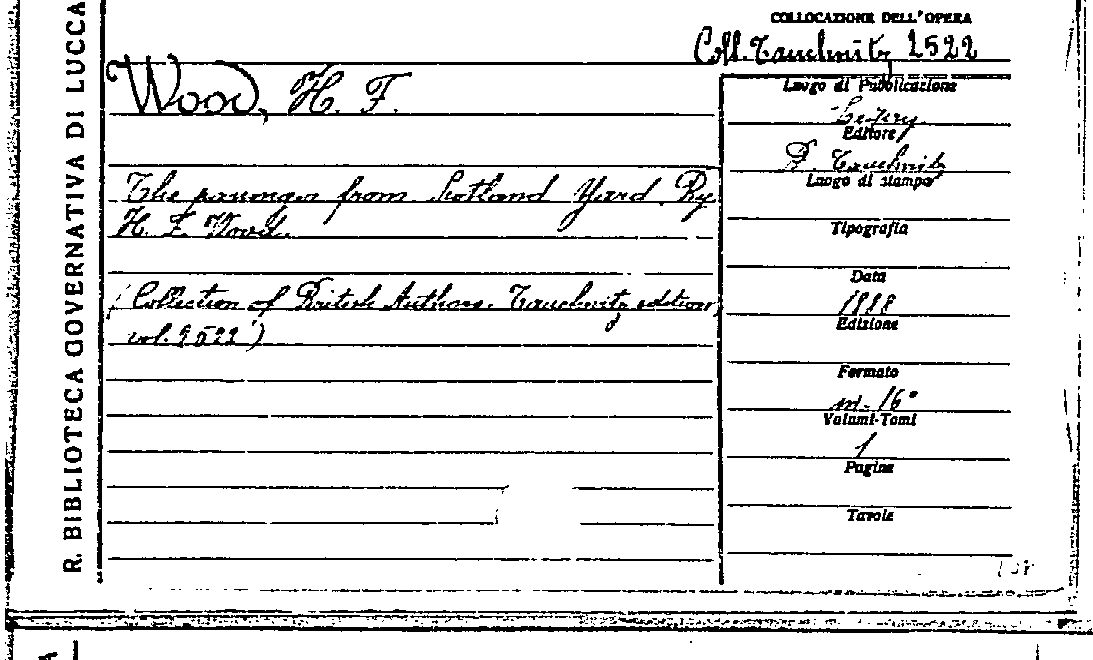 R. BIBLIOTECA GOVERNATIVA DI LUCCA
COLLOCAZIONE DELL'OPERA
Coll. Tauchnitz 2522
Wood, H. F.
The passenger from Scotland Yard. By
H. F. Wood.
(Collection of British Authors. Tauchnitz edition,
vol. 2522)
Luogo di Pubblicazione
Editore
B. Tauchnitz
Luogo di stampa
Tipografia
Data
1888
Edizione
Formato
in-16°
Volumi-Tomi
1
Pagine
Tavole